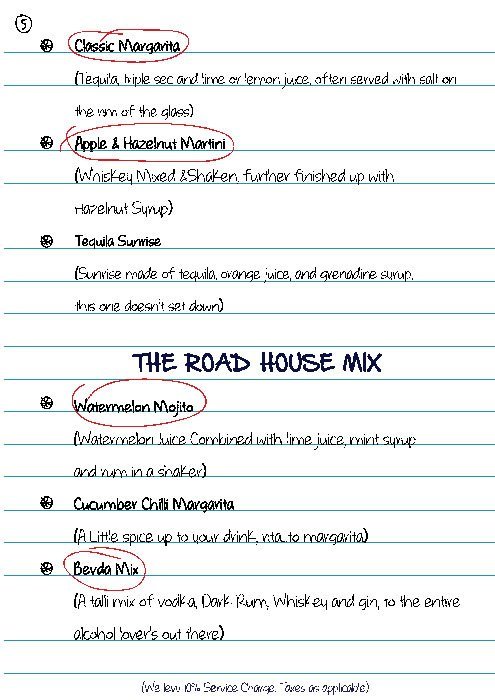 5
Classic Margarita
(Tequila, triple sec and lime or lemon juice, often served with salt on
the rim of the glass)
Apple & Hazelnut Martini
(Whiskey Mixed & Shaken, further finished up with
Hazelnut Syrup)
Tequila Sunrise
(Sunrise made of tequila, orange juice, and grenadine syrup,
this one doesn't set down)
THE ROAD HOUSE MIX
Watermelon Mojito
(Watermelon Juice Combined with lime juice, mint syrup
and rum in a shaker)
Cucumber Chilli Margarita
(A Little spice up to your drink, to margarita)
Bevda Mix
(A talli mix of vodka, Dark Rum, Whiskey and gin, to the entire
alcohol lover's out there)
(We levy 10% Service Charge. Taxes as applicable)